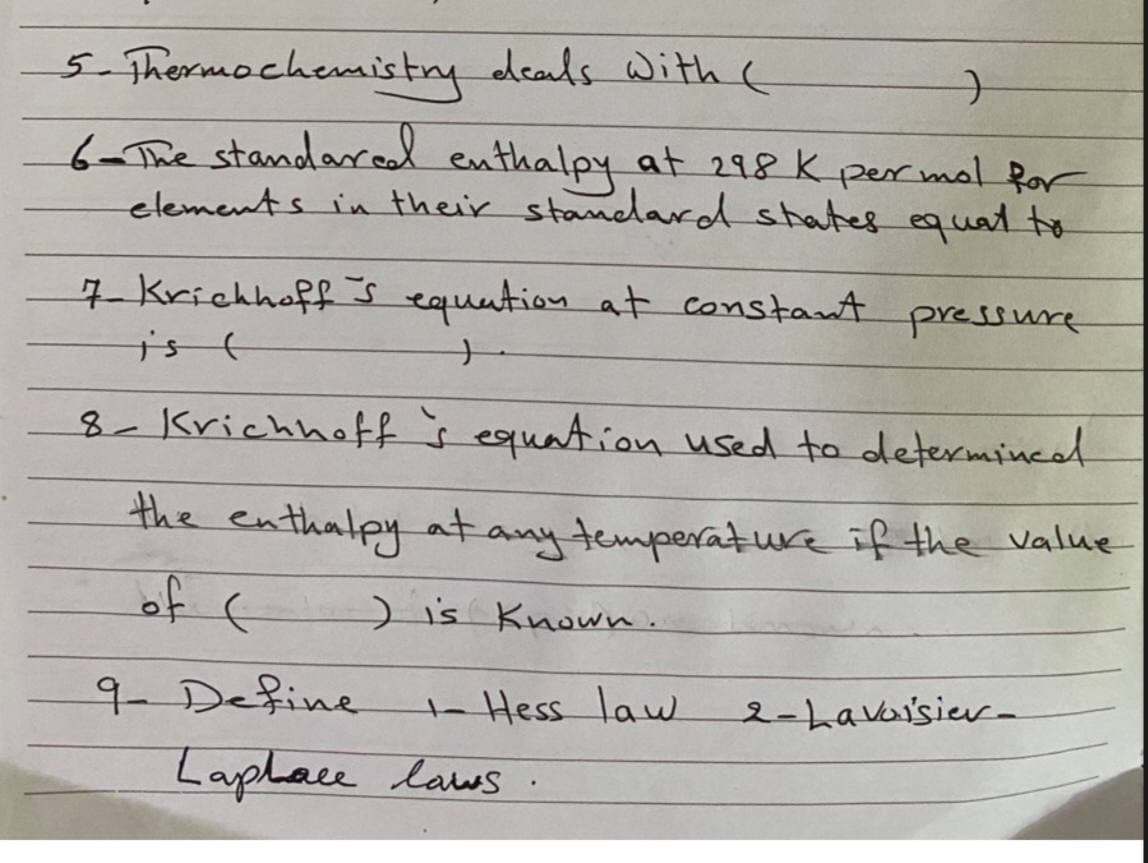 5- Thermochemistry deals with ( )
6- The standared enthalpy at 298 K per mol for
elements in their standard states equal to
7- Krichhoff's equation at constant pressure
is ( ).
8- Krichhoff's equation used to determined
the enthalpy at any temperature if the value
of ( ) is known.
9- Define 1- Hess law 2- Lavoisier-
Laplace laws.